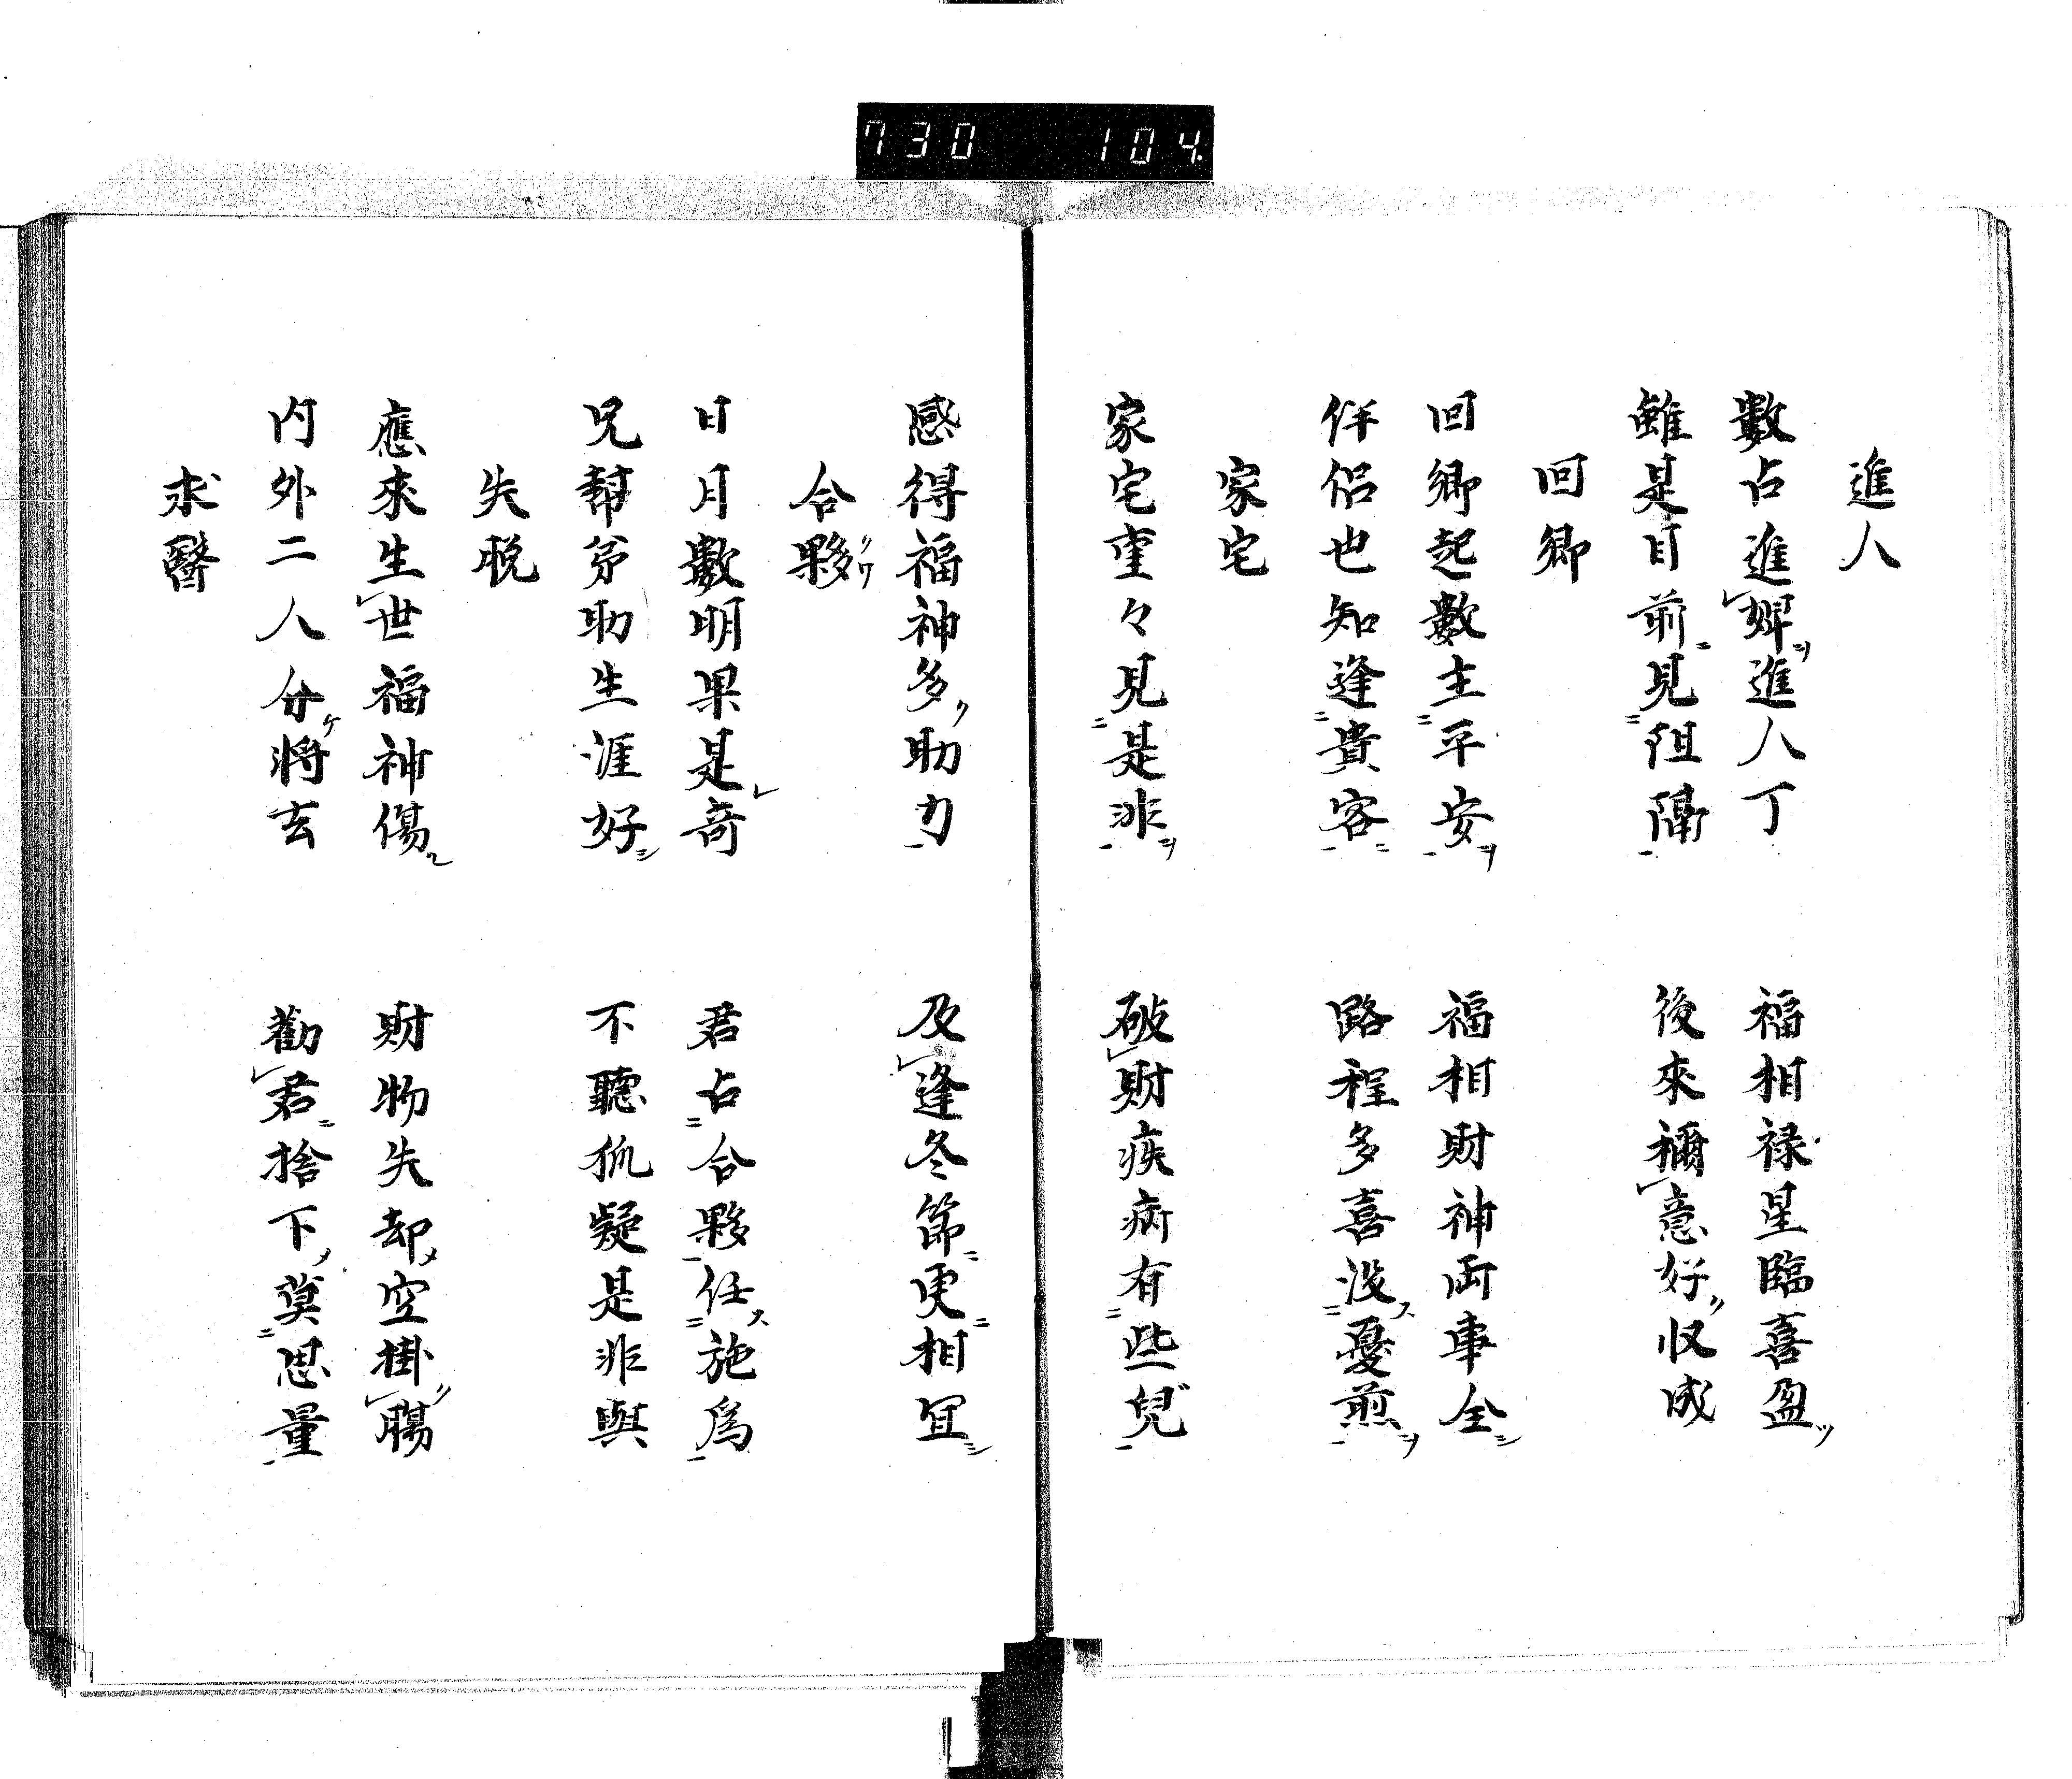 730 104
進人
數占進婢進人丁 福相禄星臨喜盈
雖是目前見阻隔 後來稱意好収成
回郷
回郷起數主平安 福相財神両事全
伴侶也知逢貴客 路程多喜没憂煎
家宅
家宅重々見是非 破財疾病有些兒
感得福神多助力 及逢冬節更相冝
合夥
日月數明果是奇 君占合夥任施爲
兄幇弟助生涯好 不聽狐疑是非與
失脱
應來生世福神傷 財物失却空掛腸
内外二人分將去 勸君捨下莫思量
求醫